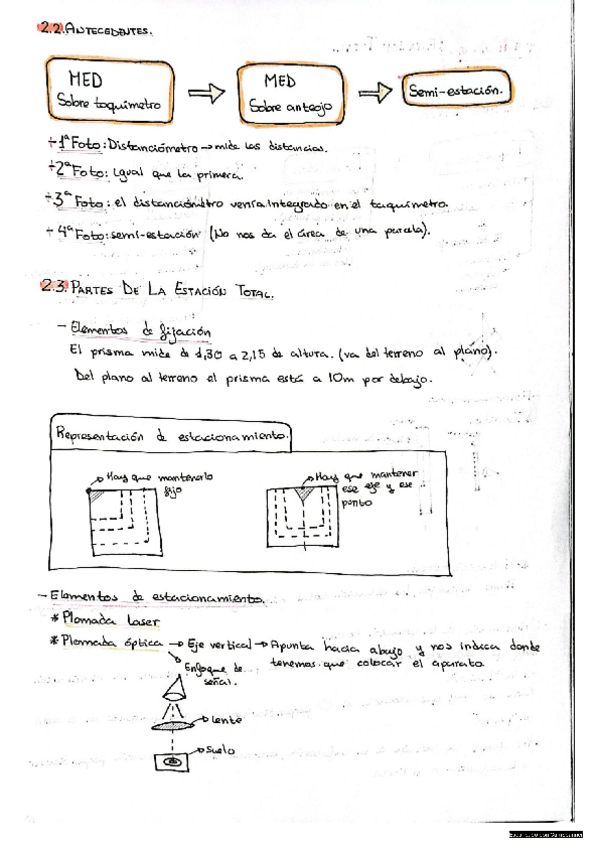 2.2. ANTECEDENTES.
MED
Sobre taquímetro
MED
Sobre anteojo
Semi-estación.
÷ 1ª Foto: Distanciómetro → mide las distancias.
÷ 2ª Foto: Igual que la primera.
÷ 3ª Foto: el distanciómetro venía integrado en el taquímetro.
÷ 4ª Foto: semi-estación (No nos da el área de una parcela).
2.3. PARTES DE LA ESTACIÓN TOTAL.
- Elementos de fijación
El prisma mide de 1,30 a 2,15 de altura. (va del terreno al plano).
Del plano al terreno el prisma está a 10m por debajo.
Representación de estacionamiento.
→ Hay que mantenerlo
fijo
→ Hay que mantener
ese eje y ese
punto
- Elementos de estacionamiento.
* Plomada laser
* Plomada óptica → Eje vertical → Apunta hacia abajo y nos indica donde
tenemos que colocar el aparato.
Enfoque de
señal.
→ lente
→ Suelo